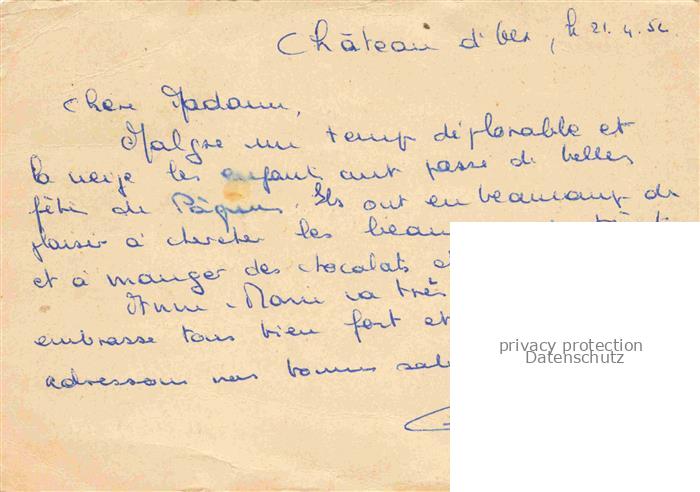 Château d'Oex, le 21.4.54.
Chère Madame,
Malgré un temps déplorable et
la neige les enfants ont passé de belles
fêtes de Pâques. Ils ont eu beaucoup de
plaisir à chercher les beaux
et à manger des chocolats et
Anne-Marie va très
embrasse tous bien fort et
adressons nos bonnes
privacy protection
Datenschutz